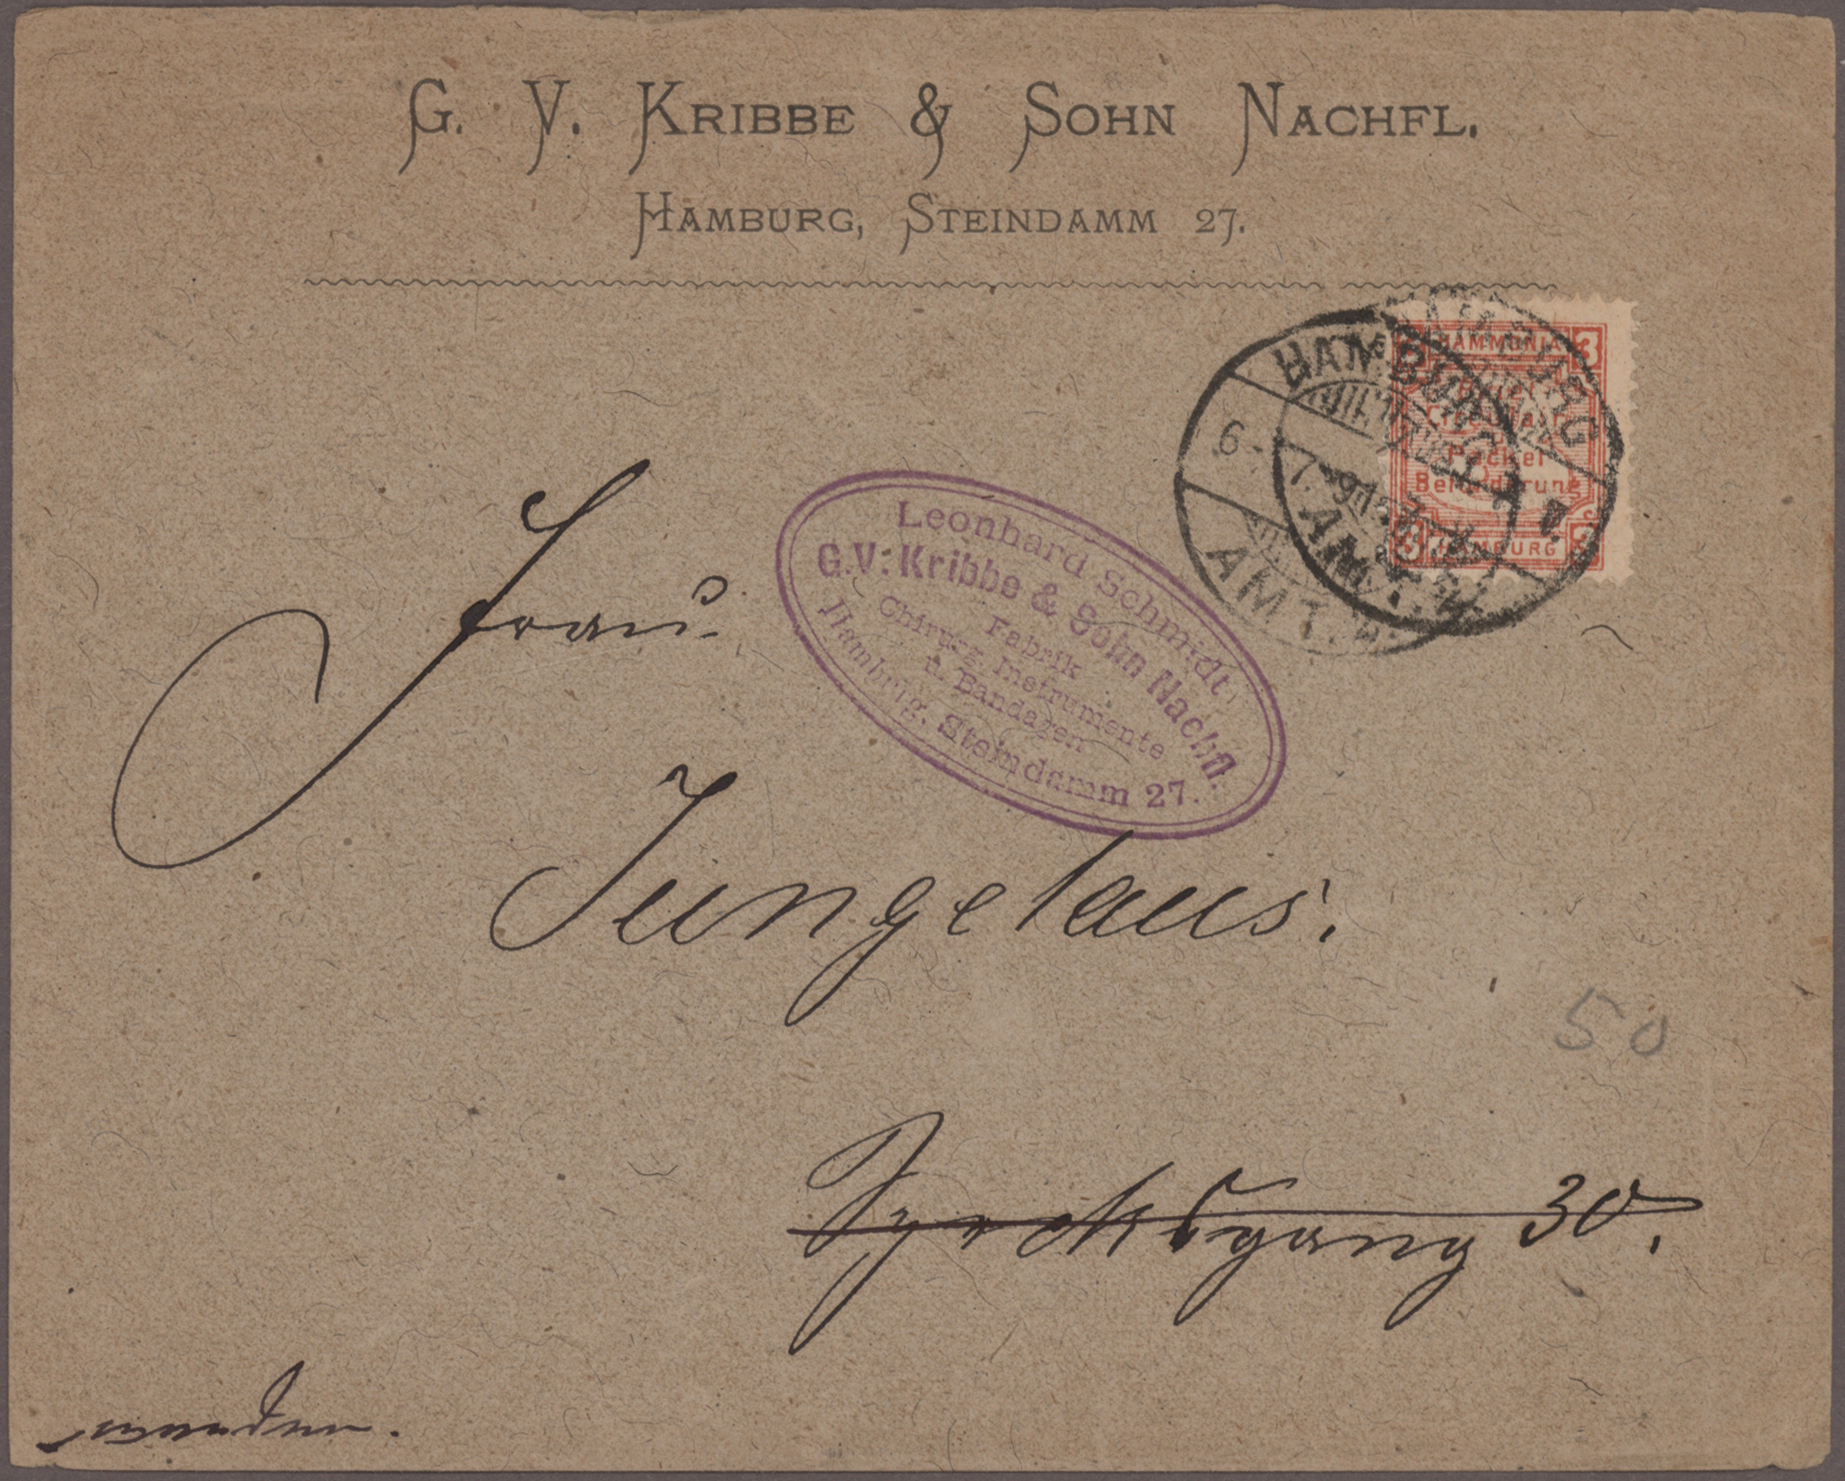 G. V. KRIBBE & SOHN NACHFL.
HAMBURG, STEINDAMM 27.
HAMMONIA
3 3
Packet
Beförderung
HAMBURG
3 3
HAMBURG
6-7
AMT
HAMBURG
AMT
Leonhard Schmidt,
G.V. Kribbe & Sohn Nachfl.
Fabrik
Chirurg. Instrumente
u. Bandagen
Hambrig, Steindamm 27.
Frau
Jungclaus.
50
Specksgang 30.
wenden.